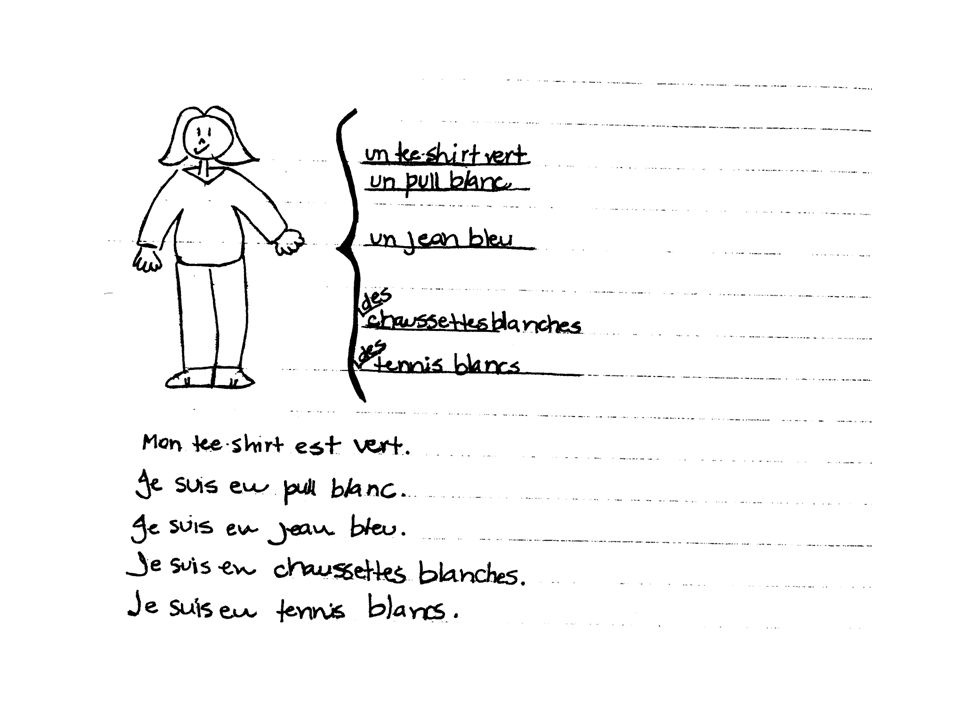 un tee-shirt vert
un pull blanc
un jean bleu
des
chaussettes blanches
des
tennis blancs
Mon tee-shirt est vert.
Je suis en pull blanc.
Je suis en jean bleu.
Je suis en chaussettes blanches.
Je suis en tennis blancs.